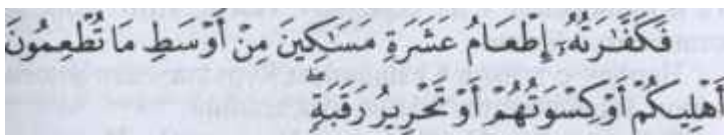 فَكَفَّـٰرَتُهُۥٓ إِطْعَامُ عَشَرَةِ مَسَـٰكِينَ مِنْ أَوْسَطِ مَا تُطْعِمُونَ
أَهْلِيكُمْ أَوْ كِسْوَتُهُمْ أَوْ تَحْرِيرُ رَقَبَةٍۖ